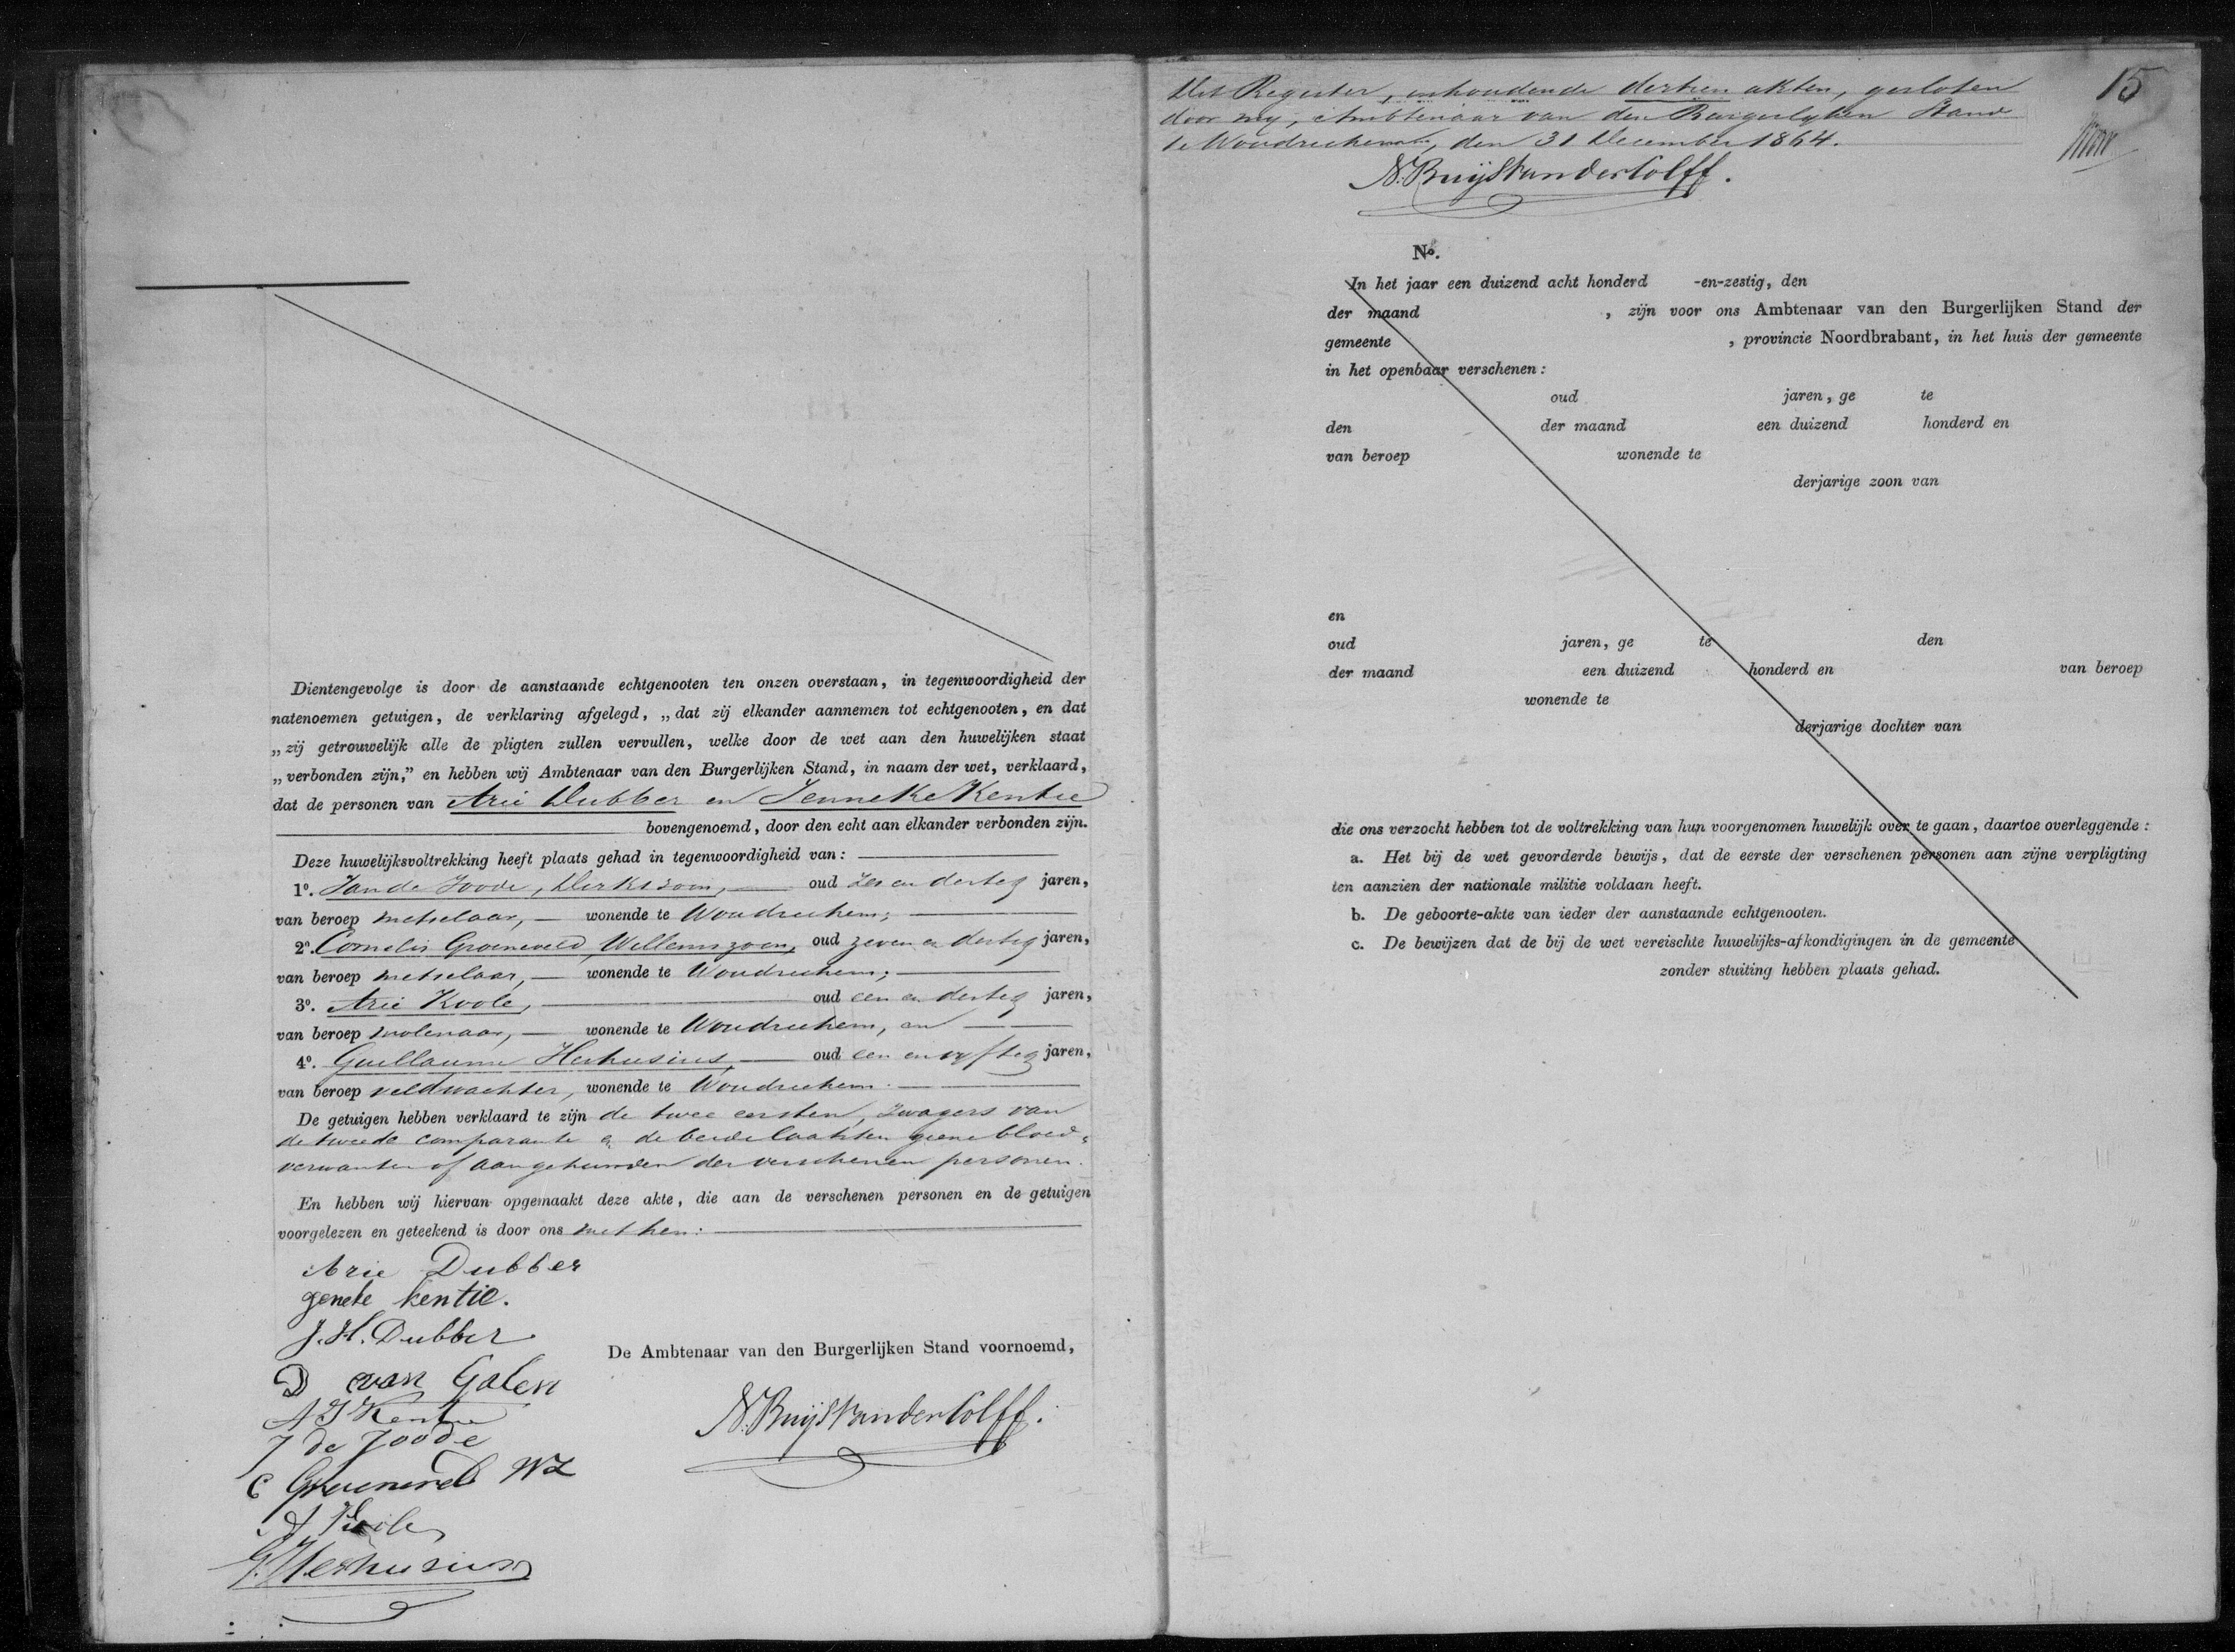 Dientengevolge is door de aanstaande echtgenooten ten onzen overstaan, in tegenwoordigheid der
natenoemen getuigen, de verklaring afgelegd, „dat zij elkander aannemen tot echtgenooten, en dat
„zij getrouwelijk alle de pligten zullen vervullen, welke door de wet aan den huwelijken staat
„verbonden zijn,” en hebben wij Ambtenaar van den Burgerlijken Stand, in naam der wet, verklaard,
dat de personen van Arie Dubber en Jenneke Kentie
bovengenoemd, door den echt aan elkander verbonden zijn.
Deze huwelijksvoltrekking heeft plaats gehad in tegenwoordigheid van:
1o. Jan de Joode, Derkszoon, oud zes en dertig jaren,
van beroep metselaar, wonende te Woudrichem;
2o. Cornelis Groeneveld, Willemszoon, oud zeven en dertig jaren,
van beroep metselaar, wonende te Woudrichem;
3o. Arie Koole, oud een en dertig jaren,
van beroep molenaar, wonende te Woudrichem, en
4o. Guillaume Herhusius, oud een en vyftig jaren,
van beroep veldwachter, wonende te Woudrichem.
De getuigen hebben verklaard te zijn de twee eersten, zwagers van
de tweede comparante en de beide laatsten geene bloed-
verwanten of aangehuwden der verschenen personen.
En hebben wij hiervan opgemaakt deze akte, die aan de verschenen personen en de getuigen
voorgelezen en geteekend is door ons met hen:
Arie Dubber
geneke kentie.
J. H. Dubber
D van Galen
De Ambtenaar van den Burgerlijken Stand voornoemd,
A J Kentie
J de Joode
N. Buijs van der Colff.
C Groeneveld WZ
A Koole
G. Herhusius
Het Register, inhoudende dertien akten, gesloten
door my, Ambtenaar van den Burgerlyken Stand
te Woudrichem, den 31 December 1864.
N. Buijs van der Colff.
15
No.
In het jaar een duizend acht honderd -en-zestig, den
der maand , zijn voor ons Ambtenaar van den Burgerlijken Stand der
gemeente , provincie Noordbrabant, in het huis der gemeente
in het openbaar verschenen:
oud jaren, ge te
den der maand een duizend honderd en
van beroep wonende te
derjarige zoon van
en
oud jaren, ge te den
der maand een duizend honderd en van beroep
wonende te
derjarige dochter van
die ons verzocht hebben tot de voltrekking van hun voorgenomen huwelijk over te gaan, daartoe overleggende:
a. Het bij de wet gevorderde bewijs, dat de eerste der verschenen personen aan zijne verpligting
ten aanzien der nationale militie voldaan heeft.
b. De geboorte-akte van ieder der aanstaande echtgenooten.
c. De bewijzen dat de bij de wet vereischte huwelijks-afkondigingen in de gemeente
zonder stuiting hebben plaats gehad.